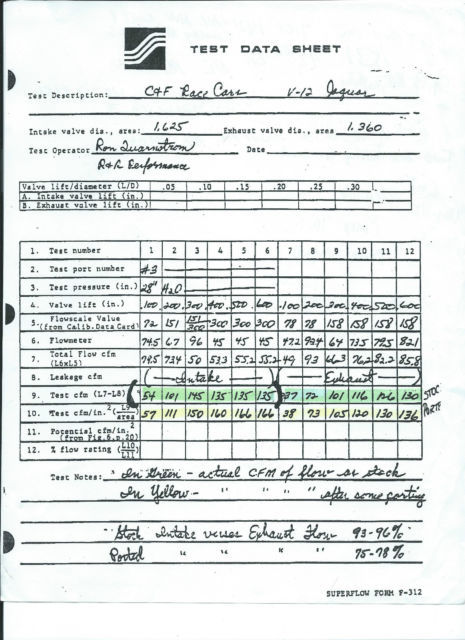 TEST DATA SHEET
Test Description: C&F Race Cars V-12 Jaguar
Intake valve dia., area: 1.625 Exhaust valve dia., area 1.360
Test Operator Ron Quarnstrom Date
R&R Performance
Valve lift/diameter (L/D) .05 .10 .15 .20 .25 .30
A. Intake valve lift (in.)
B. Exhaust valve lift (in.)
1. Test number 1 2 3 4 5 6 7 8 9 10 11 12
2. Test port number #3
3. Test pressure (in.) 28" H2O
4. Valve lift (in.) .100 .200 .300 .400 .500 .600 .100 .200 .300 .400 .500 .600
5. Flowscale Value (from Calib.Data Card) 72 151 151/300 300 300 300 78 78 158 158 158 158
6. Flowmeter 74.5 67 96 45 45 45 47.2 92.4 64 73.5 79.5 821
7. Total Flow cfm (L6xL5) 79.5 73.4 50 53.3 55.2 55.2 49 93 66.3 76.2 82.2 85.8
8. Leakage cfm Intake Exhaust
9. Test cfm (L7-L8) 54 101 145 135 135 135 37 72 101 116 126 130 STOC
10. Test cfm/in.² (L9/area) 57 111 150 160 166 166 38 73 105 120 130 136 PORTED
11. Potential cfm/in.² (from Fig.6,p.20)
12. % flow rating (L10/L11)
Test Notes: In Green - actual CFM of flow as stock
In Yellow - " " " " after some porting
Stock Intake verses Exhaust Flow 93-96%
Ported " " " " 75-78%
SUPERFLOW FORM F-312